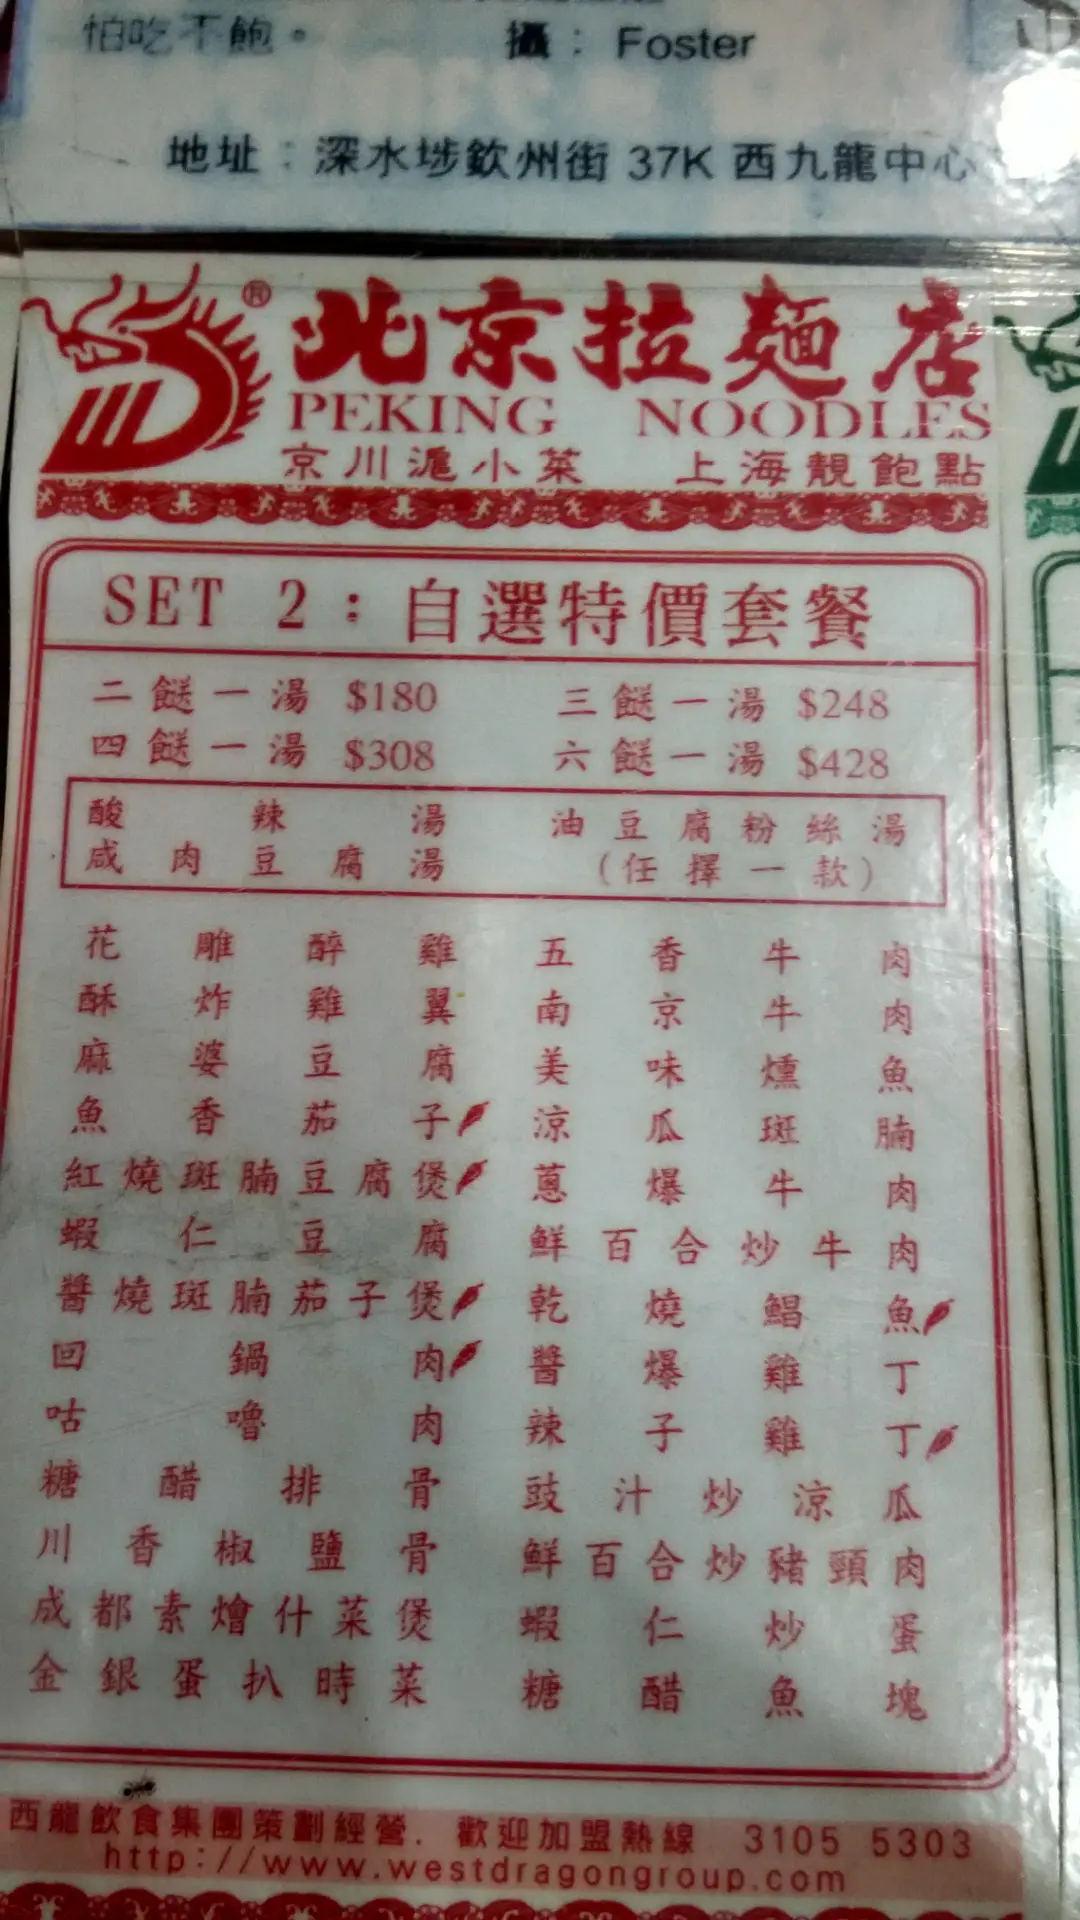 怕吃不飽。 攝：Foster
地址：深水埗欽州街 37K 西九龍中心
北京拉麵店
PEKING NOODLES
京川滬小菜 上海靚飽點
SET 2：自選特價套餐
二餸一湯 $180 三餸一湯 $248
四餸一湯 $308 六餸一湯 $428
酸辣湯 油豆腐粉絲湯
咸肉豆腐湯 (任擇一款)
花雕醉雞 五香牛肉
酥炸雞翼 南京牛肉
麻婆豆腐 美味燻魚
魚香茄子 涼瓜斑腩
紅燒斑腩豆腐煲 蔥爆牛肉
蝦仁豆腐 鮮百合炒牛肉
醬燒斑腩茄子煲 乾燒鯧魚
回鍋肉 醬爆雞丁
咕嚕肉 辣子雞丁
糖醋排骨 豉汁炒涼瓜
川香椒鹽骨 鮮百合炒豬頸肉
成都素燴什菜煲 蝦仁炒蛋
金銀蛋扒時菜 糖醋魚塊
西龍飲食集團策劃經營．歡迎加盟熱線 3105 5303
http://www.westdragongroup.com